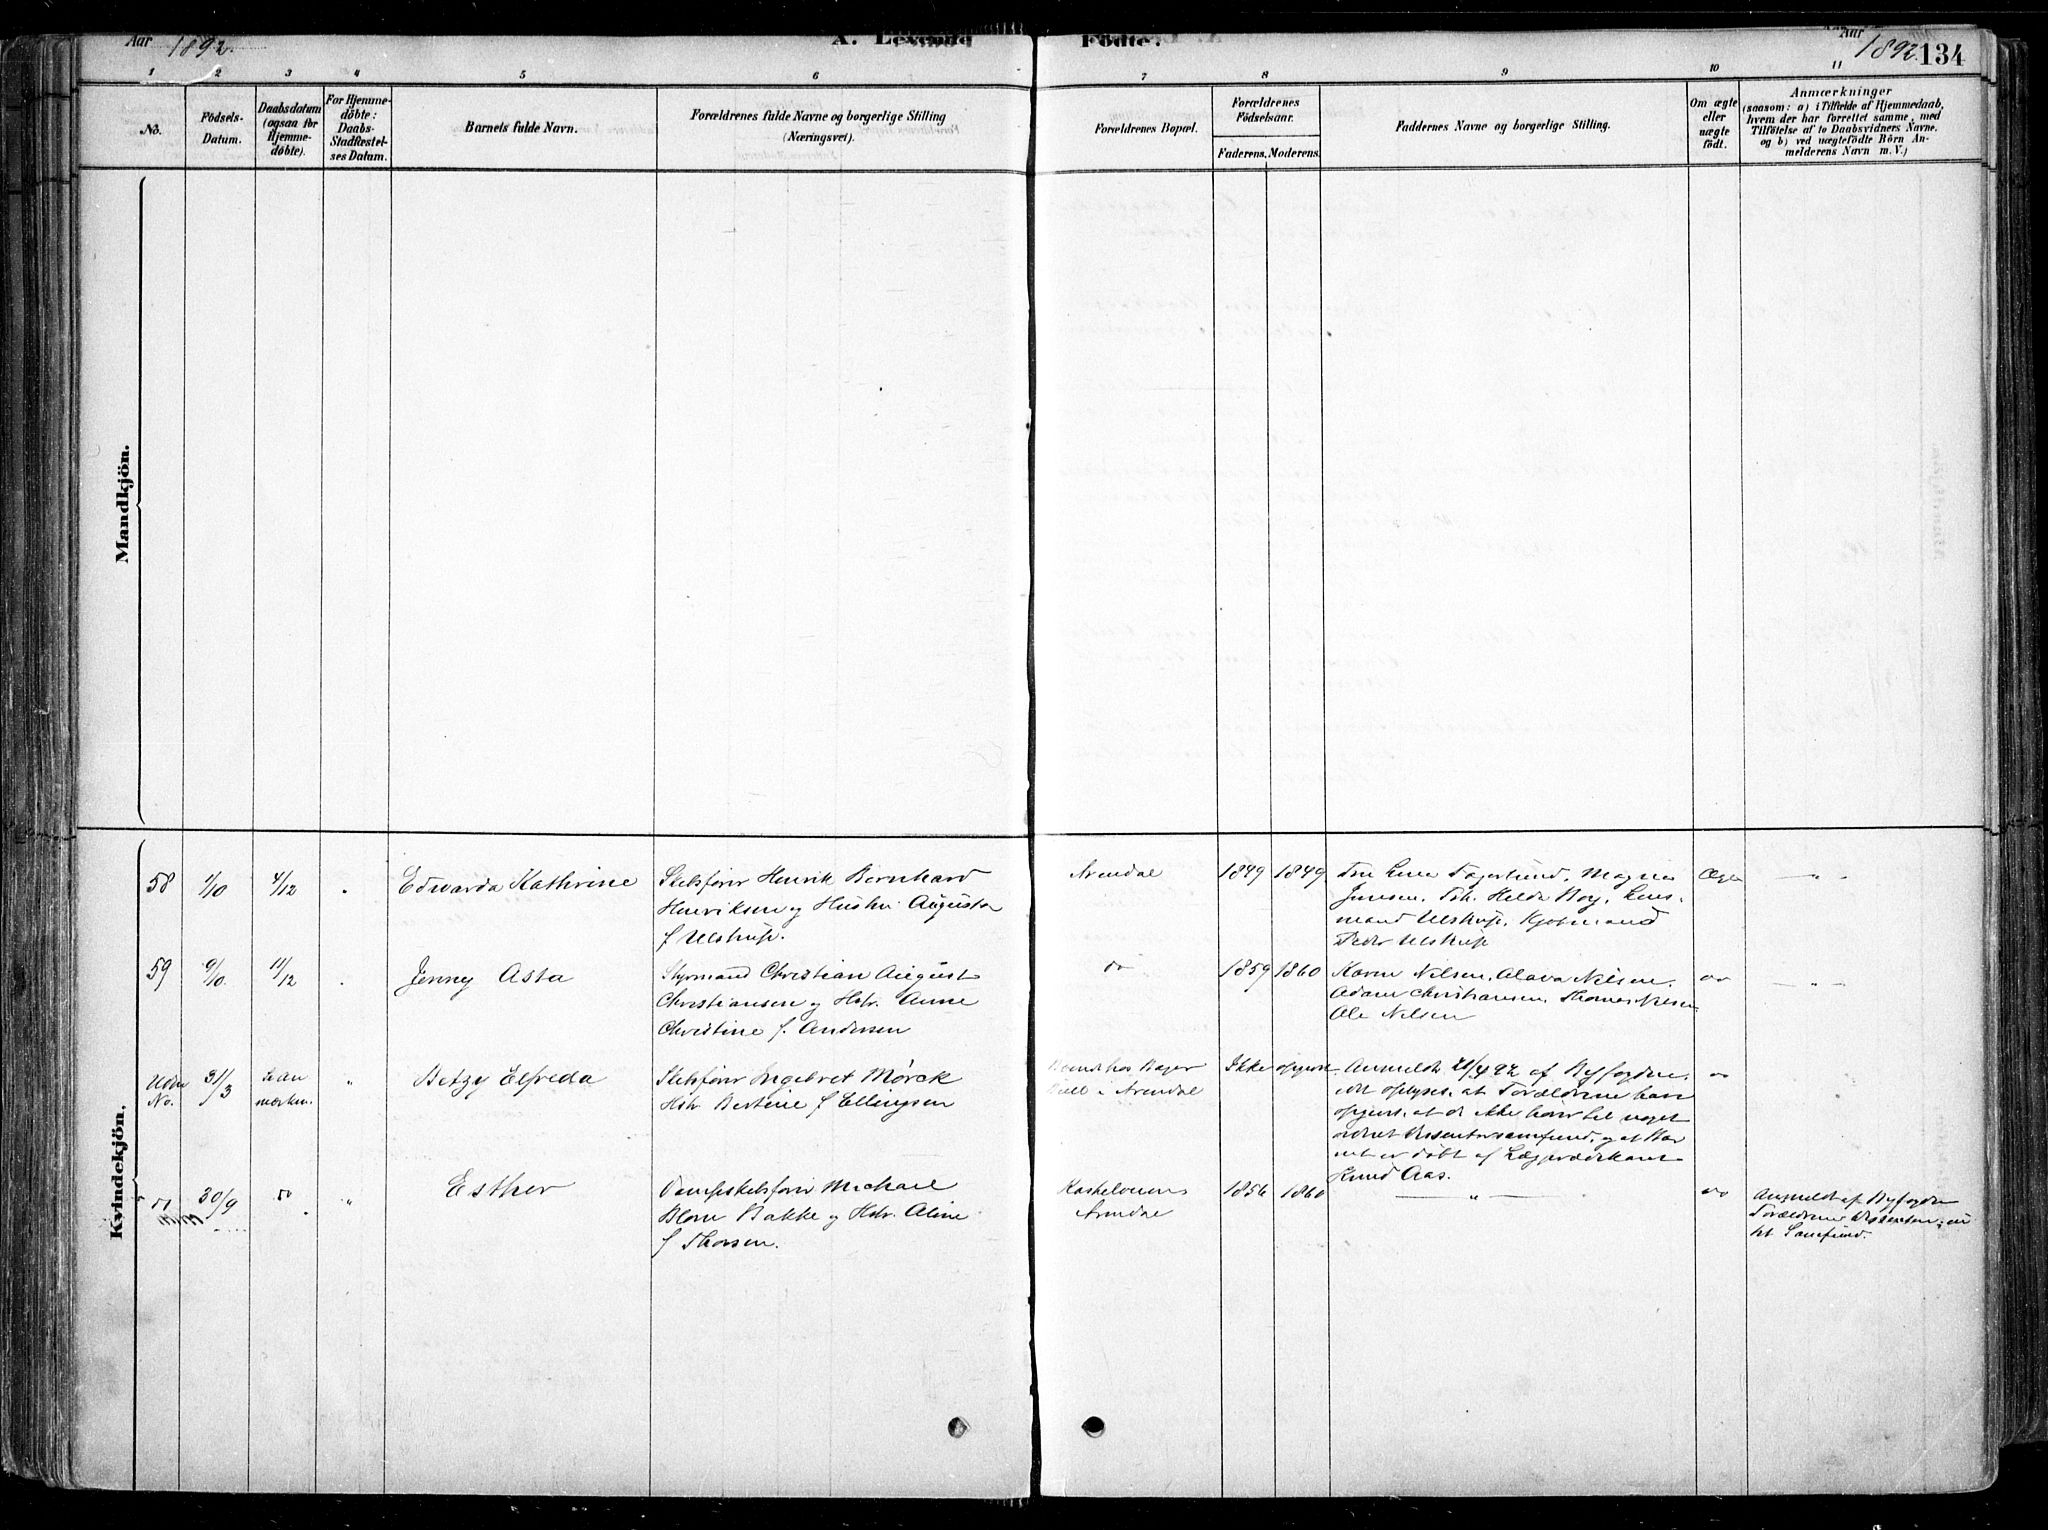 Aar 1892.
A. Levende Födte.
Aar 1892. 134
1 2 3 4 5 6 7 8 9 10 11
No.
Födsels-Datum.
Daabsdatum (ogsaa for Hjemmedöbte).
For Hjemmedöbte: Daabs-Stadfæstelses Datum.
Barnets fulde Navn.
Forældrenes fulde Navne og borgerlige Stilling (Næringsvei).
Forældrenes Bopæl.
Forældrenes Födselsaar.
Faderens. Moderens.
Faddernes Navne og borgerlige Stilling.
Om ægte eller uægte födt.
Anmærkninger
(saasom: a) i Tilfælde af Hjemmedaab,
hvem der har forrettet samme, med
Tilföielse af to Daabsvidners Navne,
og b) ved uægtefödte Börn An-
melderens Navn m. V.)
Mandkjön.
Kvindekjön.
58 1/10 4/12 " Edwarda Kathrine
Skibsfører Henrik Bernhard
Henriksen og Hustru Augusta
f Ulstrup.
Arendal 1849 1849
Fru Lena Fagerlund, Magnus
Jensen, Frk. Helda Boy, Lens-
mand Ulstrup, Kjøbmand
Peder Ulstrup
Ægte "
59 9/10. 11/12 " Jenny Asta
Styrmand Christian August
Christiansen og Hstr. Anne
Christine f. Andersen
do 1859 1860
Karen Nilsen, Olava Nilsen,
Adam Christiansen, Thomas Nilsen
Ole Nilsen
do "
Uden No. 31/3 " Betzy Elfreda
Skibsfører Ingebret Mørck
Hstr Bertine f Ellingsen
i Arendal
Ikke opgivet
Anmeldt 20/4 92 af Byfogden,
idet oplyses, at Forældrene have
opgivet, at de ikke hører til noget
ordnet Dissentersamfund, og at Bar
net er døbt af Lægprædikant
Knud Aas.
do
do 30/9 do " Esther
Dampskibsfører Michael
Blom Bakke og Hstr. Aline
f Thorsen.
Arendal
1856 1860 " do
Anmeldt af Byfogden
Forældrene Dissentere, u
det Samfund.